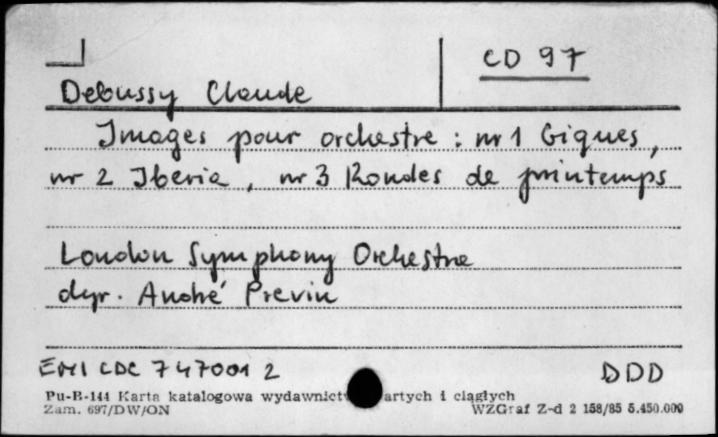 CD 97
Debussy Claude
Images pour orchestre : nr 1 Gigues,
nr 2 Iberia, nr 3 Rondes de printemps
London Symphony Orchestra
dyr. André Previn
EMI CDC 747001 2 DDD
Pu-B-144 Karta katalogowa wydawnict artych i ciągłych
Zam. 697/DW/ON WZGraf Z-d 2 158/85 5.450.000